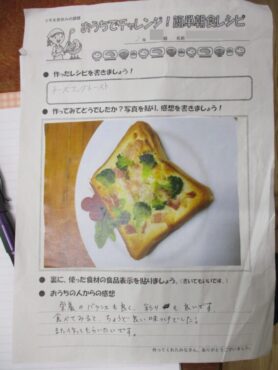 おうちでチャレンジ！簡単朝食レシピ
年 組 名前
● 作ったレシピを書きましょう！
チーズエッグトースト
● 作ってみてどうでしたか？写真を貼り、感想を書きましょう！
● 裏に、使った食材の食品表示を貼りましょう。
● おうちの人からの感想
栄養のバランスも良く、彩りも良いです。
食べてみると、ちょうど良い味つけでした。
また作ってもらいたいです。
作ってくれたみなさん、ありがとうございました。